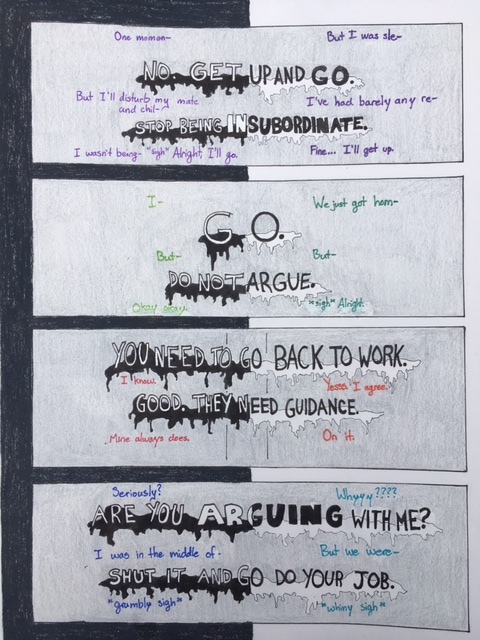 One momen-
But I was sle-
NO. GET UP AND GO.
But I'll disturb my mate
and chil-
I've had barely any re-
STOP BEING INSUBORDINATE.
I wasn't being- *sigh* Alright, I'll go.
Fine... I'll get up.
I-
We just got hom-
GO.
But-
But-
DO NOT ARGUE.
Okay okay.
*sigh* Alright.
YOU NEED TO GO BACK TO WORK.
I know.
Yessa I agree.
GOOD. THEY NEED GUIDANCE.
Mine always does.
On it.
Seriously?
Whyyy????
ARE YOU ARGUING WITH ME?
I was in the middle of-
But we were-
SHUT IT AND GO DO YOUR JOB.
*grumbly sigh*
*whiny sigh*